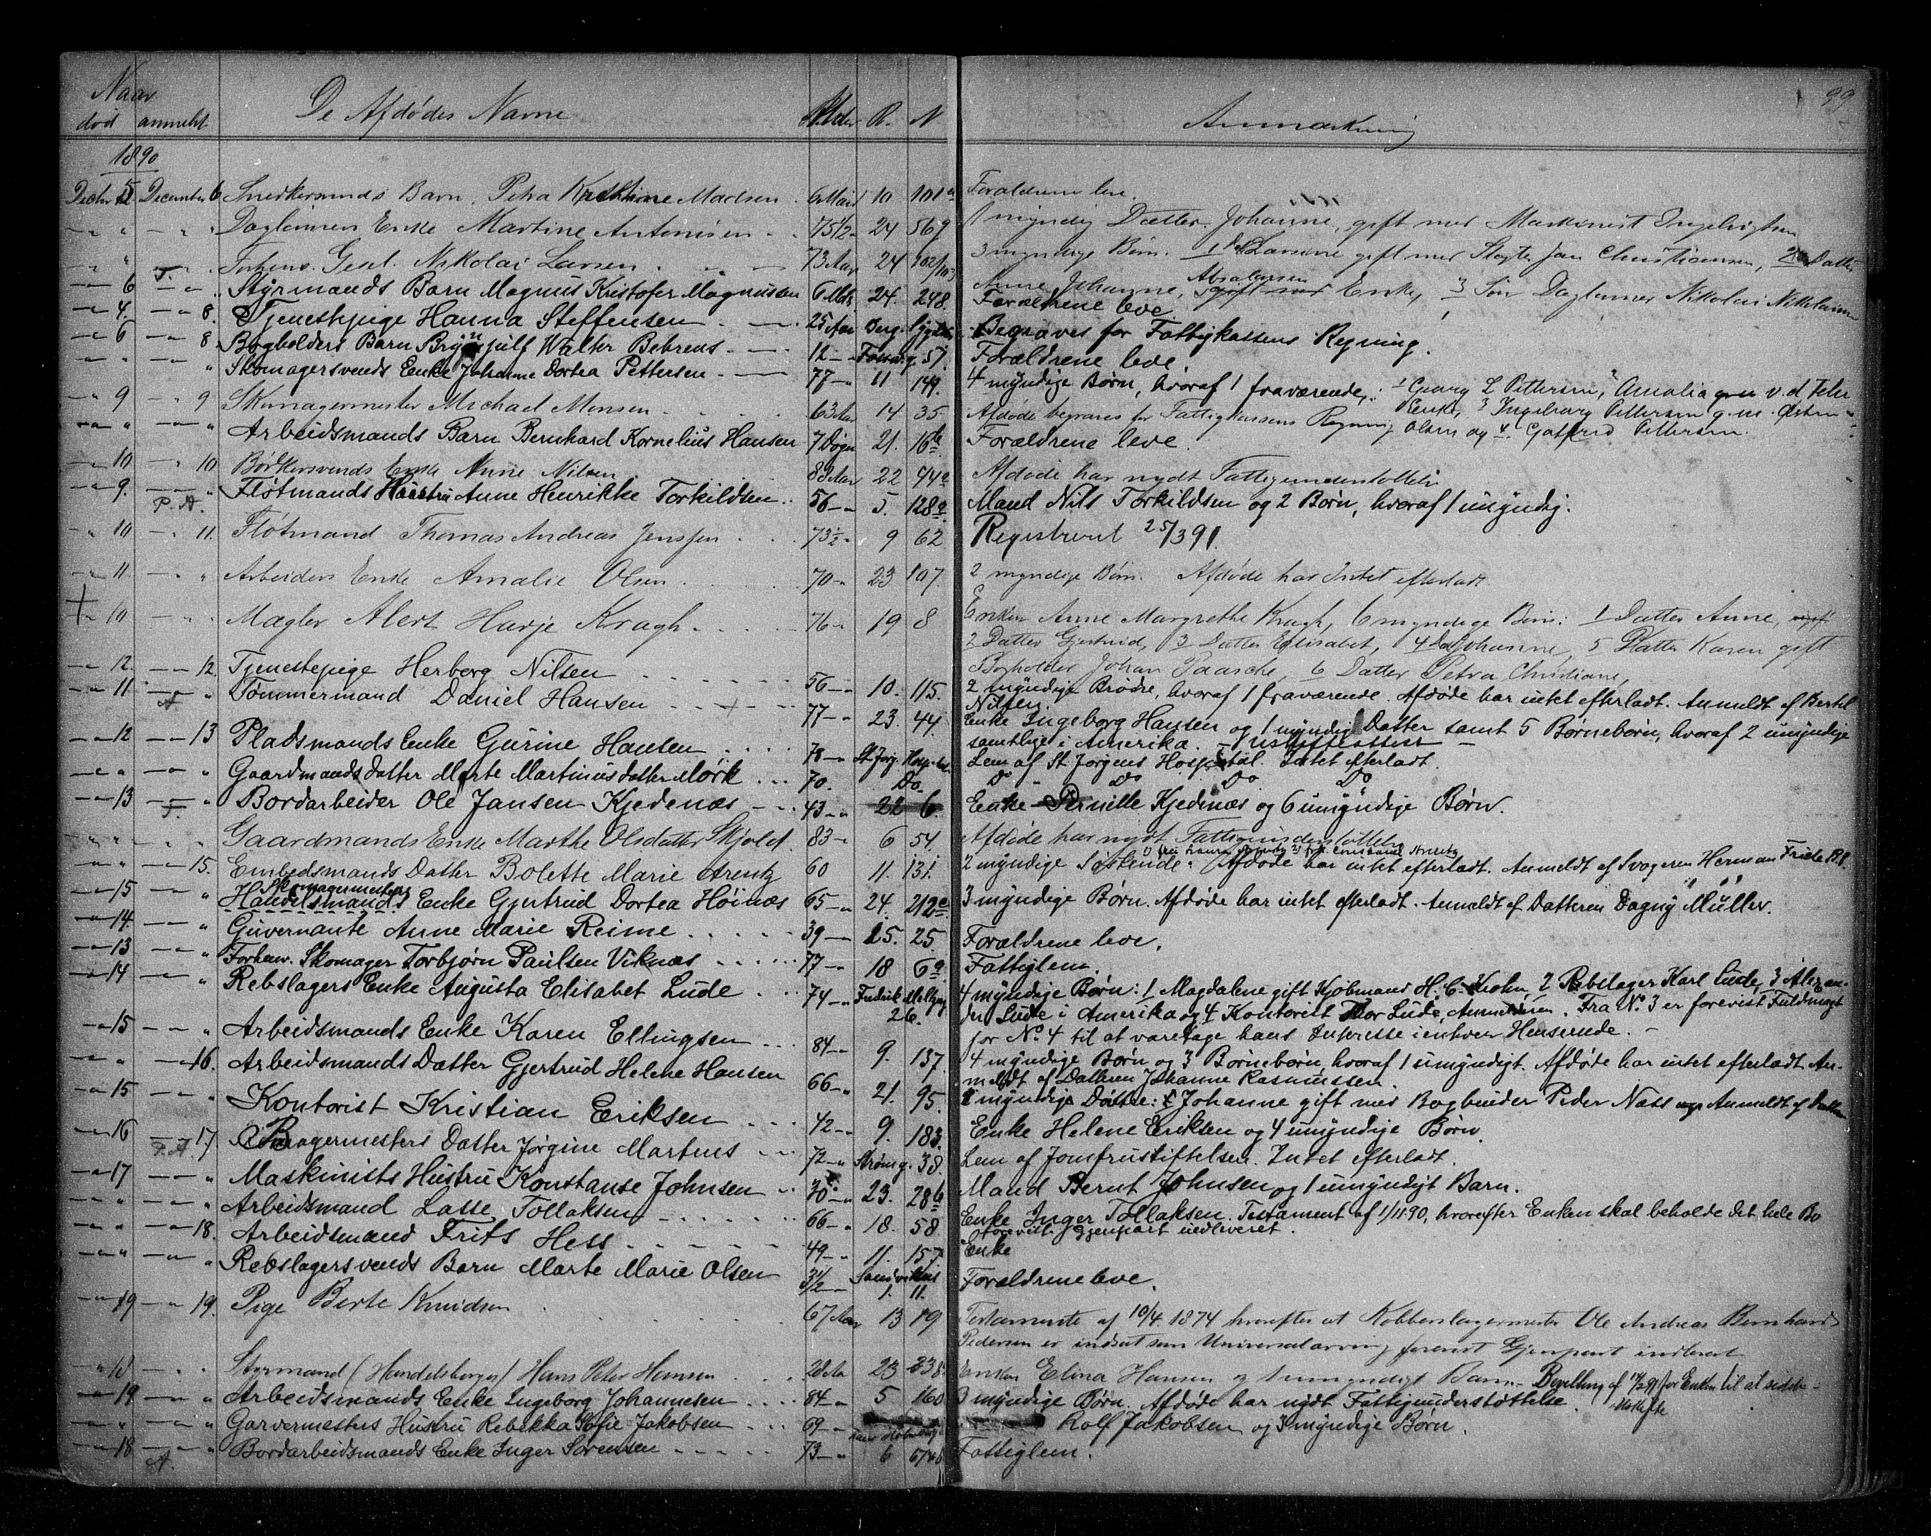 Naar De Afdødes Navne Alder R. N Anmærkning 99
død anmeldt
1890
Decbr 5 December 6 Snedkersvends Barn, Petra Kristine Madsen 6 Maan 10 101a Forældrene leve.
" " Dagleiers Enke Martine Antonisen 75 1/2 24 569 1 myndig Datter Johanne, gift med Maskinist Ingebrigtsen
" " F. Larsen 73 Aar 24 3 myndige Børn. 1 Larsine gift med Jan Christiansen, 2 Datter
Anne Johanne, Enke, 3 Søn Dagleiner Nikolai Nikolaisen
6 " Styrmands Barn Magnus Kristofer Magnussen 6 Mdr 24. 248. Forældrene leve
4. 8. Tjenestepige Hanna Steffensen 25 Aar Berg. Begraves for Fattigkassens Regning.
6 8 Bogholders Barn Brynjulf Walter Behrens 12 57. Forældrene leve.
" " Skomagersvends Enke Johanne Dortea Pettersen 77 11 149. 4 myndige Børn, hvoraf 1 fraværende, 1 Georg Pettersen, 2 Amalia
9 9 Skomagermester Michael Monsen 63 Aar 14 35 Afdøde begraves for Fattigkassens Regning Enke, 3 Ingeborg Pettersen g. m. Olsen og 4. Pettersen.
" " Arbeidsmands Barn Bernhard Kornelius Hansen 7 Døgn 21. 16b Forældrene leve.
10 10 Bødkersvends Enke Anne Nilsen 83 Aar 22 44a Afdøde har nydt Fattigunderstøttelse
9. P. A. " Fløtmands Hustru Anne Henrikke Torkildsen 56 5. 128a. Mand Nils Torkildsen og 2 Børn, hvoraf 1 umyndig.
10 11. Fløtmand Thomas Andreas Jenssen 73 1/2 9 62 Registreret 25/3 91.
11. " Arbeiders Enke Amalie Olsen 70 23 107 2 myndige Børn. Afdøde har Intet efterladt
+ 10 " Mægler Alert Harje Kragh 76 19 8 Enken Anne Margrethe Kragh, 6 myndige Børn: 1 Datter Anne,
2 Datter Gjertrud, 3 Datter Elisabet, 4 Do Johanne, 5 Datter Karen gift
Bogholder Johan Paasche, 6 Datter Petra Christiane,
12. 12. Tjenestepige Herborg Nilsen 56 10. 115. 2 myndige Brødre, hvoraf 1 fraværende. Afdøde har intet efterladt. Anmeldt af Bertel
Nilsen.
11 A " Tømmermand Daniel Hansen 77 23. 44. Enke Ingeborg Hansen og 1 myndig Datter samt 5 Børnebørn, hvoraf 2 umyndige
samtlige i Amerika.
12 13 Pladsmands Enke Gurine Hansen 78 St Jørg. Hosp. Lem af St Jørgens Hospital. Intet efterladt.
" " Gaardmands Datter Marte Martinusdatter Mørk 70. Do Do Do Do Do
13 F. " Bordarbeider Ole Jansen Kjedenæs 43 22 6. Enke Pernille Kjednæs og 6 umyndige Børn.
" " Gaardmands Enke Marthe Olsdatter Skjold 83 6 54. Afdøde har nydt Fattigunderstøttelse
" 15. Embedsmands Datter Bolette Marie Arentz 60 11. 131. 2 myndige Søskende. Afdøde har intet efterladt. Anmeldt af Svogeren Herman Friele
15 " Skomagermesters
Handelsmands Enke Gjertrud Dortea Høinæs 65 24. 212c 3 myndige Børn. Afdøde har intet efterladt. Anmeldt af Datteren Dagny Müller.
14. " Guvernante Anne Marie Reime 39 15. 25. Forældrene leve.
13 " Forhenv. Skomager Torbjørn Paulsen Viknæs 77 18 6a Fattiglem.
14 " Rebslagers Enke Augusta Elisabet Lude 74 Fredrik Meltzersg 26. 4 myndige Børn: 1 Magdalene gift Kjøbmand H. C. Krohn 2 Rebslager Karl Lude, 3 Alexan-
der Lude i Amerika og 4 Kontorist Thor Lude, Anmelderen. Fra No. 3 er forevist Fuldmagt
for No. 4 til at varetage hans Interesse i enhver Henseende.
15 " Arbeidsmands Enke Karen Ellingsen 84 9. 137 4 myndige Børn og 3 Børnebørn, hvoraf 1 umyndigt. Afdøde har intet efterladt. An-
meldt af Datteren Johanne Rasmussen.
" 16. Arbeidsmands Datter Gjertrud Helene Hansen 66 21. 95. myndige Johanne gift med Bogbinder Peder Næss Anmeldt af
15 " Kontorist Kristian Eriksen 42 9. 183. Enke Helene Eriksen og 4 umyndige Børn.
16 F. A. 17. Bagermesters Datter Jørgine Martens 72 Strømg. 38. Lem af Jomfrustiftelsen. Intet efterladt.
17 " Maskinists Hustru Konstanse Johnsen 30 23. 286 Mand Bernt Johnsen og 1 umyndigt Barn.
" " Arbeidsmand Lasse Tollaksen 66 18. 58 Enke Inger Tollaksen. Testament af 1/11 90, hvorefter Enken skal beholde det hele Bo
forevist. Gjenpart indleveret.
" 18. Arbeidsmand Frits Hess 49 11. 157 Enke
" " Rebslagersvends Barn Marte Marie Olsen 3 1/2 Sandviken 1. 11. Forældrene leve.
19 19. Pige Berte Knudsen 67 Aar 13 19 Testamente af 10/4. 1874 hvorefter at Kobberslagermester Ole Andreas Bernhard
Pedersen er indsat som Universalarving forevist Gjenpart indleveret
18 " Styrmand (Handelsborger) Hans Peter Hansen 28 Aar 23 Enken Elina Hansen og 1 umyndigt Barn. Bevilling af 17/2 91 for Enken til at sidde i
uskiftet
19 " Arbeidsmands Enke Ingeborg Johannesen 84 5 160 3 myndige Børn. Afdøde har nydt Fattigunderstøttelse.
" " Garvermesters Hustru Rebekka Sofie Jakobsen 69 Rolf Jakobsen og 3 myndige Børn.
18 A. " Bordarbeidsmands Enke Inger Sørensen 73 6 Fattiglem.